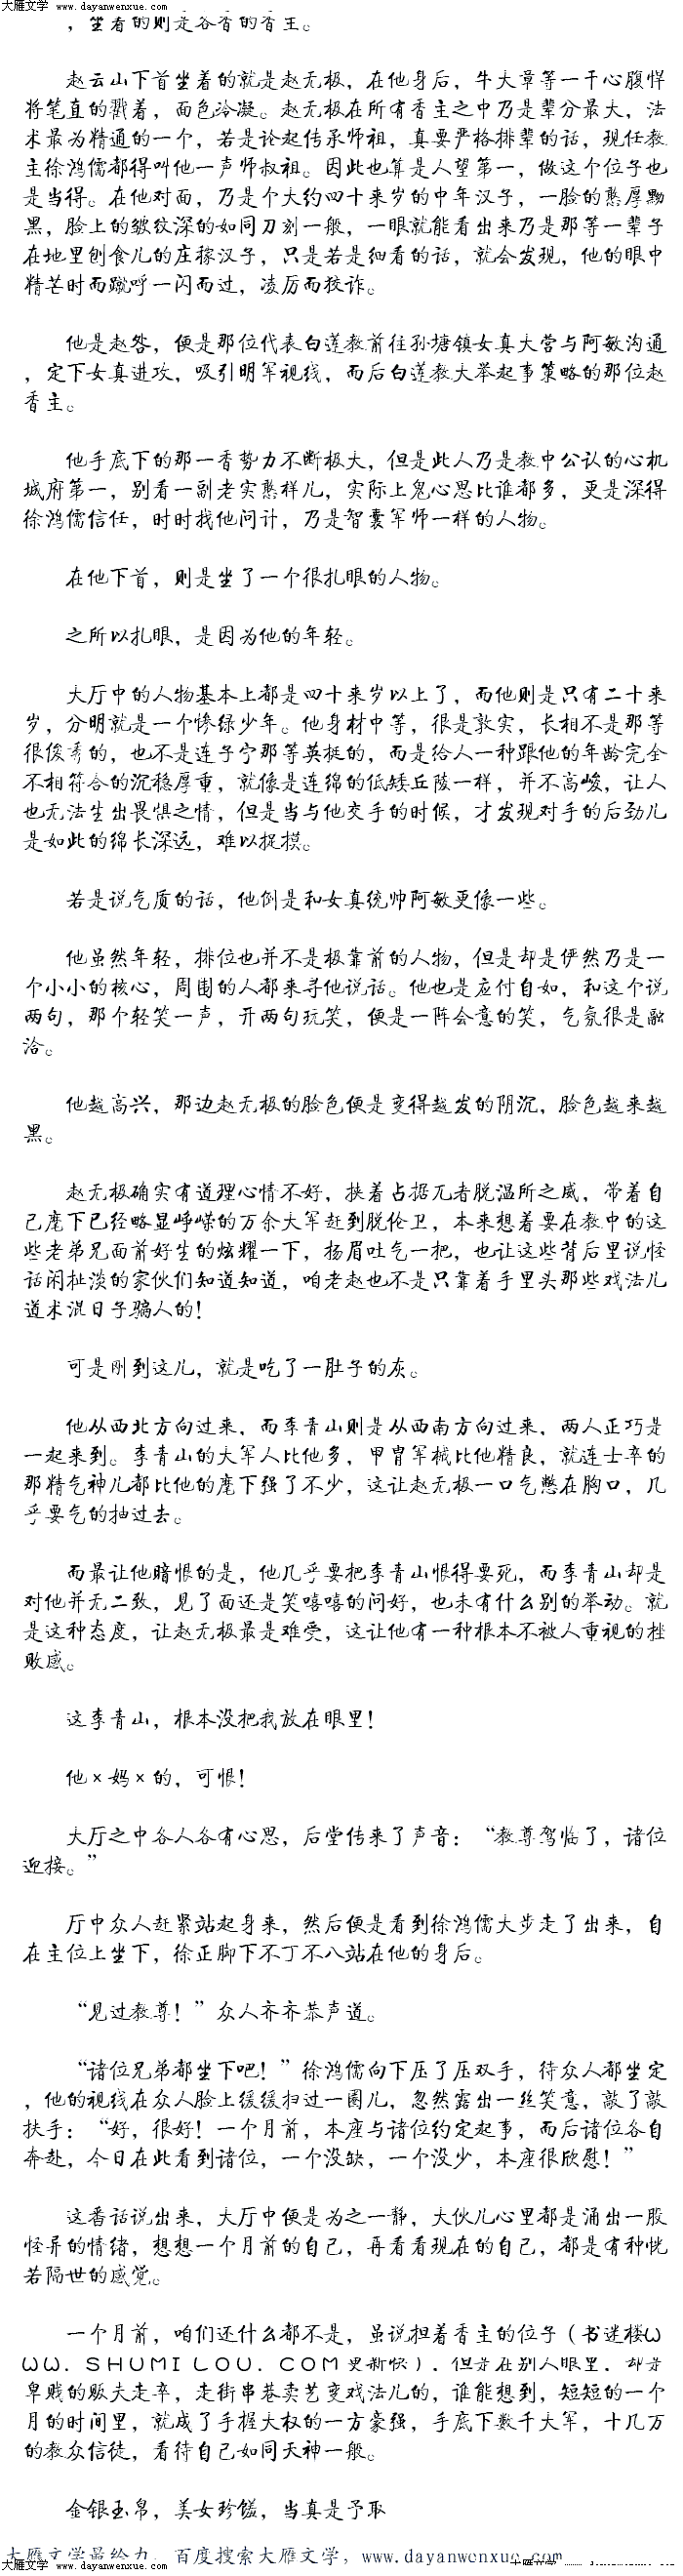 大雁文学 www.dayanwenxue.com 大雁文学 www.dayanwenxue.com
，坐着的则是各香的香主。
赵云山下首坐着的就是赵无极，在他身后，牛大章等一干心腹悍
将笔直的戳着，面色冷凝。赵无极在所有香主之中乃是辈分最大，法
术最为精通的一个，若是论起传承师祖，真要严格排辈的话，现任教
主徐鸿儒都得叫他一声师叔祖。因此也算是人望第一，做这个位子也
是当得。在他对面，乃是个大约四十来岁的中年汉子，一脸的憨厚黝
黑，脸上的皱纹深的如同刀刻一般，一眼就能看出来乃是那等一辈子
在地里刨食儿的庄稼汉子，只是若是细看的话，就会发现，他的眼中
精芒时而蹴呼一闪而过，凌厉而狡诈。
他是赵咎，便是那位代表白莲教前往孙塘镇女真大营与阿敏沟通
，定下女真进攻，吸引明军视线，而后白莲教大举起事策略的那位赵
香主。
他手底下的那一香势力不断极大，但是此人乃是教中公认的心机
城府第一，别看一副老实憨样儿，实际上鬼心思比谁都多，更是深得
徐鸿儒信任，时时找他问计，乃是智囊军师一样的人物。
在他下首，则是坐了一个很扎眼的人物。
之所以扎眼，是因为他的年轻。
大厅中的人物基本上都是四十来岁以上了，而他则是只有二十来
岁，分明就是一个惨绿少年。他身材中等，很是敦实，长相不是那等
很俊秀的，也不是连子宁那等英挺的，而是给人一种跟他的年龄完全
不相符合的沉稳厚重，就像是连绵的低矮丘陵一样，并不高峻，让人
也无法生出畏惧之情，但是当与他交手的时候，才发现对手的后劲儿
是如此的绵长深远，难以捉摸。
若是说气质的话，他倒是和女真统帅阿敏更像一些。
他虽然年轻，排位也并不是极靠前的人物，但是却是俨然乃是一
个小小的核心，周围的人都来寻他说话。他也是应付自如，和这个说
两句，那个轻笑一声，开两句玩笑，便是一阵会意的笑，气氛很是融
洽。
他越高兴，那边赵无极的脸色便是变得越发的阴沉，脸色越来越
黑。
赵无极确实有道理心情不好，挟着占据兀者脱温所之威，带着自
己麾下已经略显峥嵘的万余大军赶到脱伦卫，本来想着要在教中的这
些老弟兄面前好生的炫耀一下，扬眉吐气一把，也让这些背后里说怪
话闲扯淡的家伙们知道知道，咱老赵也不是只靠着手里头那些戏法儿
道术混日子骗人的！
可是刚到这儿，就是吃了一肚子的灰。
他从西北方向过来，而李青山则是从西南方向过来，两人正巧是
一起来到。李青山的大军人比他多，甲胄军械比他精良，就连士卒的
那精气神儿都比他的麾下强了不少，这让赵无极一口气憋在胸口，几
乎要气的抽过去。
而最让他暗恨的是，他几乎要把李青山恨得要死，而李青山却是
对他并无二致，见了面还是笑嘻嘻的问好，也未有什么别的举动。就
是这种态度，让赵无极最是难受，这让他有一种根本不被人重视的挫
败感。
这李青山，根本没把我放在眼里！
他×妈×的，可恨！
大厅之中各人各有心思，后堂传来了声音：“教尊驾临了，诸位
迎接。”
厅中众人赶紧站起身来，然后便是看到徐鸿儒大步走了出来，自
在主位上坐下，徐正脚下不丁不八站在他的身后。
“见过教尊！”众人齐齐恭声道。
“诸位兄弟都坐下吧！”徐鸿儒向下压了压双手，待众人都坐定
，他的视线在众人脸上缓缓扫过一圈儿，忽然露出一丝笑意，敲了敲
扶手：“好，很好！一个月前，本座与诸位约定起事，而后诸位各自
奔赴，今日在此看到诸位，一个没缺，一个没少，本座很欣慰！”
这番话说出来，大厅中便是为之一静，大伙儿心里都是涌出一股
怪异的情绪，想想一个月前的自己，再看看现在的自己，都是有种恍
若隔世的感觉。
一个月前，咱们还什么都不是，虽说担着香主的位子（书迷楼W
WW．SHUMILOU．COM更新快），但是在别人眼里，却是
卑贱的贩夫走卒，走街串巷卖艺变戏法儿的，谁能想到，短短的一个
月的时间里，就成了手握大权的一方豪强，手底下数千大军，十几万
的教众信徒，看待自己如同天神一般。
金银玉帛，美女珍馐，当真是予取
大雁文学最给力，百度搜索大雁文学，www.dayanwenxue.com
大雁文学 www.dayanwenxue.com 大雁文学 www.dayanwenxue.com